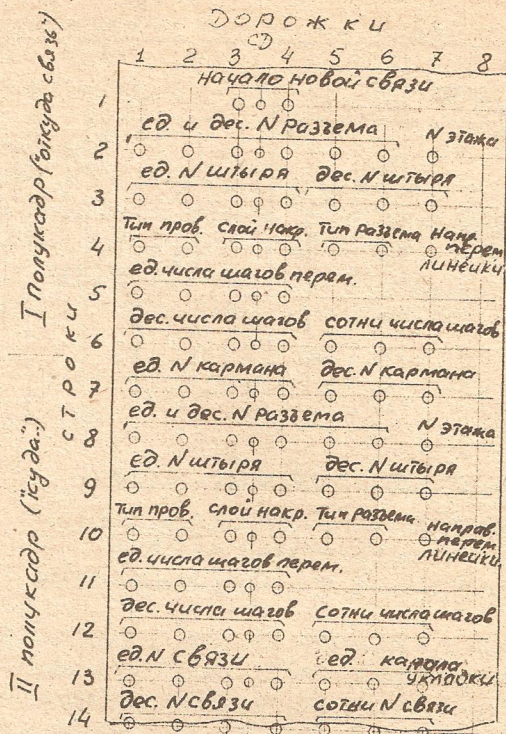 ДОРОЖКИ
СД
1 2 3 4 5 6 7 8
I полукадр ("откуда связь")
II полукадр ("куда..")
СТРОКИ
1 начало новой связи
2 ед. и дес. N разъема N этажа
3 ед. N штыря дес. N штыря
4 Тип пров. Слой накр. Тип разъема Напр. перем линейки
5 ед. числа шагов перем.
6 дес. числа шагов сотни числа шагов
7 ед. N кармана дес. N кармана
8 ед. и дес. N разъема N этажа
9 ед. N штыря дес. N штыря
10 Тип пров. Слой накр. Тип разъема направ. перем линейки
11 ед. числа шагов перем.
12 дес. числа шагов сотни числа шагов
13 ед. N связи ед. канала укладки
14 дес. N связи сотни N связи